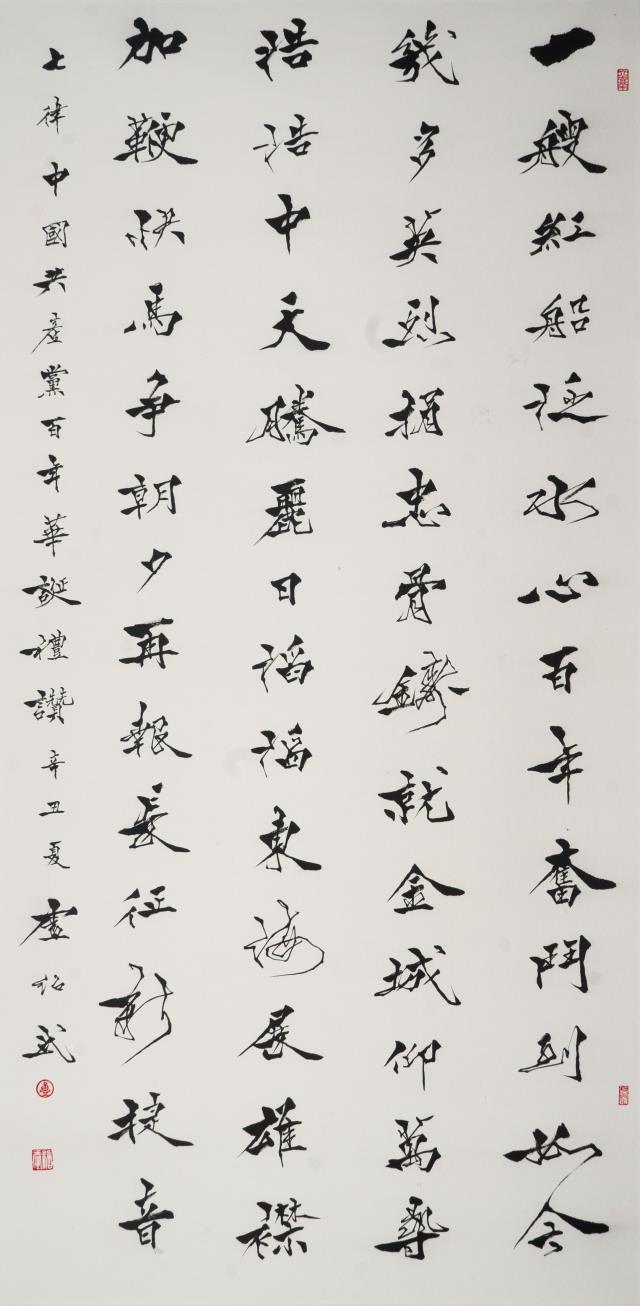 一艘紅船泛水心百年奮鬥到如今
幾多英烈捐忠骨鑄就金城仰萬尋
浩浩中天騰麗日滔滔東海展雄襟
加鞭快馬争朝夕再報長征新捷音
七律中國共產黨百年華誕禮讚辛丑夏盧紹武